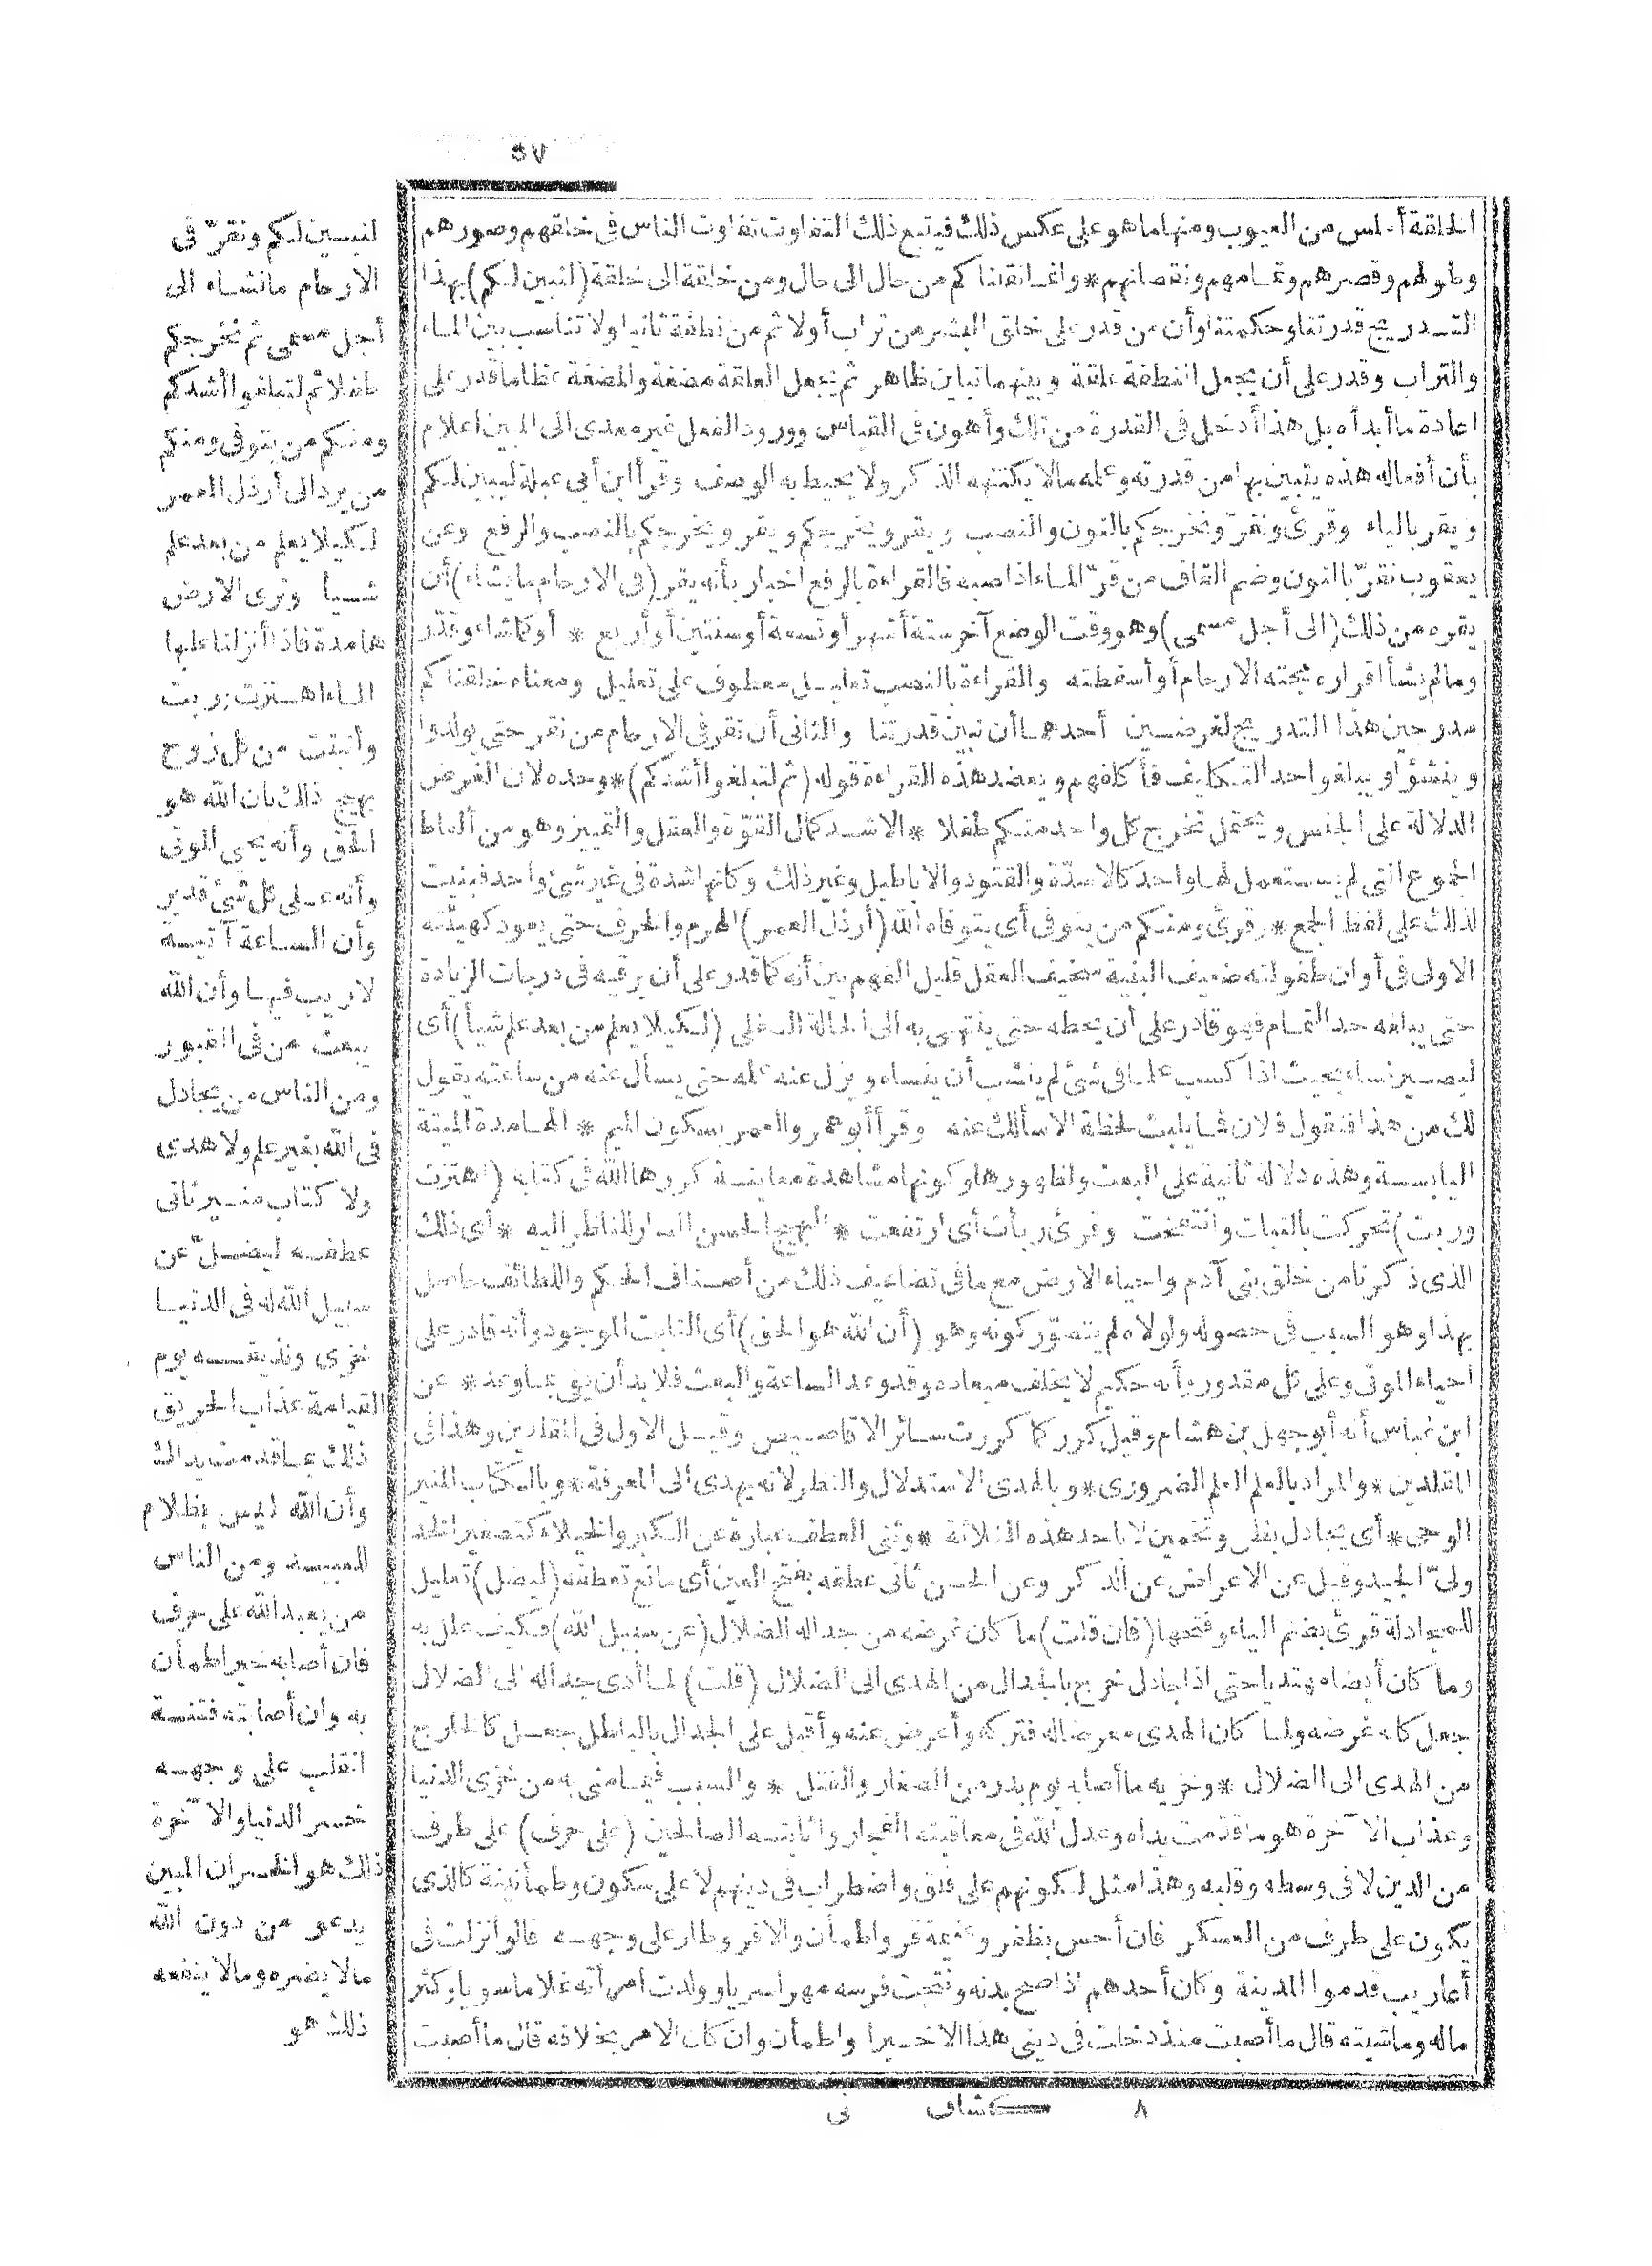 ٥٧
الخلقة أملس من العيوب ومنها ما هو على عكس ذلك فيتبع ذلك التفاوت تفاوت الناس فى خلقهم وصورهم
وطولهم وقصرهم وتمامهم ونقصانهم * وانما نقلناكم من حال الى حال ومن خلقة الى خلقة (لنبين لكم) بهذا
التدريج قدرتنا وحكمتنا وأن من قدر على خلق البشر من تراب أولا ثم من نطفة ثانيا ولا تناسب بين الماء
والتراب وقدر على أن يجعل النطفة علقة وبينهما تباين ظاهر ثم يجعل العلقة مضغة والمضغة عظاما قدر على
اعادة ما أبدأه بل هذا أدخل فى القدرة من تلك وأهون فى القياس وورود الفعل غير معدى الى المبين اعلام
بأن أفعاله هذه يتبين بها من قدرته وعلمه مالا يكتنهه الذكر ولا يحيط به الوصف وقرأ ابن أبى عبلة ليبين لكم
ويقر بالياء وقرئ ونقرّ ونخرجكم بالنون والنصب ويقر ويخرجكم ويقر ويخرجكم بالنصب والرفع وعن
يعقوب نقرّ بالنون وضم القاف من قرّ الماء اذا صبه فالقراءة بالرفع اخبار بأنه يقر (فى الارحام ما يشاء) أن
يقره من ذلك (الى أجل مسمى) وهو وقت الوضع آخر ستة أشهر أو تسعة أو سنتين أو أربع * أو كما شاء وقدّر
وما لم يشأ اقراره مجته الارحام أو أسقطته والقراءة بالنصب تعليل معطوف على تعليل ومعناه خلقناكم
مدرجين هذا التدريج لغرضين أحدهما أن نبين قدرتنا والثانى أن نقر فى الارحام من نقر حتى يولدوا
وينشؤا ويبلغوا حد التكليف فأكلفهم ويعضد هذه القراءة قوله (ثم لتبلغوا أشدكم) * وحده لان الغرض
الدلالة على الجنس ويحتمل نخرج كل واحد منكم طفلا * الاشد كمال القوّة والعقل والتمييز وهو من ألفاظ
الجموع التى لم يستعمل لها واحد كالاسدّة والقتود والاباطيل وغير ذلك وكانها شدة فى غير شئ واحد فبنيت
لذلك على لفظ الجمع * وقرئ ومنكم من يتوفى أى يتوفاه الله (أرذل العمر) الهرم والخرف حتى يعود كهيئته
الاولى فى أوان طفولته ضعيف البنية سخيف العقل قليل الفهم بين أنه كما قدر على أن يرقيه فى درجات الزيادة
حتى يبلغه حد التمام فهو قادر على أن يحطه حتى ينتهى به الى الحالة السفلى (لكيلا يعلم من بعد علم شيأ) أى
ليصير نساء بحيث اذا كسب علما فى شئ لم ينشب أن ينساه ويزل عنه علمه حتى يسأل عنه من ساعته يقول
لك من هذا فتقول فلان فما يلبث لحظة الا سألك عنه وقرأ أبو عمرو العمر بسكون الميم * الهامدة الميتة
اليابسة وهذه دلالة ثانية على البعث ولظهورها وكونها مشاهدة معاينة كررها الله فى كتابه (اهتزت
وربت) تحركت بالنبات وانتفخت وقرئ ربأت أى ارتفعت * البهيج الحسن السار للناظر اليه * أى ذلك
الذى ذكرنا من خلق بنى آدم واحياء الارض مع ما فى تضاعيف ذلك من أصناف الحكم واللطائف حاصل
بهذا وهو السبب فى حصوله ولولاه لم يتصوّر كونه وهو (أن الله هو الحق) أى الثابت الموجود وأنه قادر على
احياء الموتى وعلى كل مقدور وأنه حكيم لا يخلف ميعاده وقد وعد الساعة والبعث فلا بد أن يفى بما وعد * عن
ابن عباس أنه أبو جهل بن هشام وقيل كرر كما كررت سائر الاقاصيص وقيل الاول فى المقلدين وهذا فى
المقلدين * والمراد بالعلم العلم الضرورى * وبالهدى الاستدلال والنظر لانه يهدى الى المعرفة * وبالكتاب المنير
الوحى * أى يجادل بظن وتخمين لا باحد هذه الثلاثة * وثنى العطف عبارة عن الكبر والخيلاء كتصغير الخد
ولىّ الجيد وقيل عن الاعراض عن الذكر وعن الحسن ثانى عطفه بفتح العين أى مانع تعطفه (ليضل) تعليل
للمجادلة قرئ بضم الياء وفتحها (فان قلت) ما كان غرضه من جداله الضلال (عن سبيل الله) فكيف علل به
وما كان أيضا مهتديا حتى اذا جادل خرج بالجدال من الهدى الى الضلال (قلت) لما أدى جداله الى الضلال
جعل كأنه غرضه ولما كان الهدى معرضا له فتركه وأعرض عنه وأقبل على الجدال بالباطل جعل كالخارج
من الهدى الى الضلال * وخزيه ما أصابه يوم بدر من الصغار والقتل * والسبب فيما منى به من خزى الدنيا
وعذاب الآخرة هو ما قدّمت يداه وعدل الله فى معاقبته الفجار واثابته الصالحين (على حرف) على طرف
من الدين لا فى وسطه وقلبه وهذا مثل لكونهم على قلق واضطراب فى دينهم لا على سكون وطمأنينة كالذى
يكون على طرف من العسكر فان أحس بظفر وغنيمة قر واطمأن والا فر وطار على وجهه قالوا نزلت فى
أعاريب قدموا المدينة وكان أحدهم اذا صح بدنه ونتجت فرسه مهرا سريا وولدت امرأته غلاما سويا وكثر
ماله وماشيته قال ما أصبت منذ دخلت فى دينى هذا الا خيرا واطمأن وان كان الامر بخلافه قال ما أصبت
لنبين لكم ونقرّ فى
الارحام ما نشاء الى
أجل مسمى ثم نخرجكم
طفلا ثم لتبلغوا أشدكم
ومنكم من يتوفى ومنكم
من يرد الى أرذل العمر
لكيلا يعلم من بعد علم
شيأ وترى الارض
هامدة فاذا أنزلنا عليها
الماء اهتزت وربت
وأنبتت من كل زوج
بهيج ذلك بان الله هو
الحق وأنه يحيى الموتى
وأنه على كل شئ قدير
وأن الساعة آتية
لا ريب فيها وأن الله
يبعث من فى القبور
ومن الناس من يجادل
فى الله بغير علم ولا هدى
ولا كتاب منير ثانى
عطفه ليضلّ عن
سبيل الله له فى الدنيا
خزى ونذيقه يوم
القيامة عذاب الحريق
ذلك بما قدمت يداك
وأن الله ليس بظلام
للعبيد ومن الناس
من يعبد الله على حرف
فان أصابه خير اطمأن
به وان أصابته فتنة
انقلب على وجهه
خسر الدنيا والآخرة
ذلك هو الخسران المبين
يدعو من دون الله
مالا يضره ومالا ينفعه
ذلك هو
٨ كشاف نى